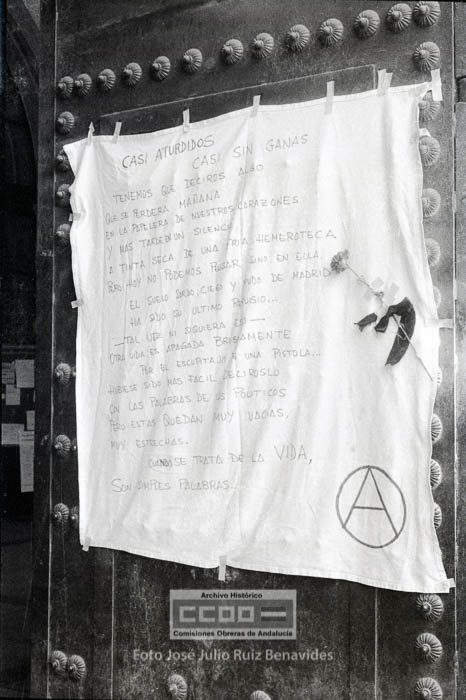 CASI ATURDIDOS
CASI SIN GANAS
TENEMOS QUE DECIROS ALGO
QUE SE PERDERA MAÑANA
EN LA PAPELERA DE NUESTROS CORAZONES
Y MAS TARDE EN UN SILENCIO
A TINTA SECA DE UNA FRIA HEMEROTECA
PERO HOY NO PODEMOS PENSAR SINO EN ELLA.
EL SUELO SORDO, CIEGO Y MUDO DE MADRID
HA SIDO SU ULTIMO REFUGIO...
—TAL VEZ NI SIQUIERA ESO—
OTRA VIDA ES APAGADA BRUSCAMENTE
POR EL ESCUPITAJO DE UNA PISTOLA...
HUBIESE SIDO MAS FACIL DECIROSLO
CON LAS PALABRAS DE LOS POLITICOS
PERO ESTAS QUEDAN MUY VACIAS,
MUY ESTRECHAS.
CUANDO SE TRATA DE LA VIDA,
SON SIMPLES PALABRAS...
A
Archivo Histórico
CCOO
Comisiones Obreras de Andalucía
Foto José Julio Ruiz Benavides